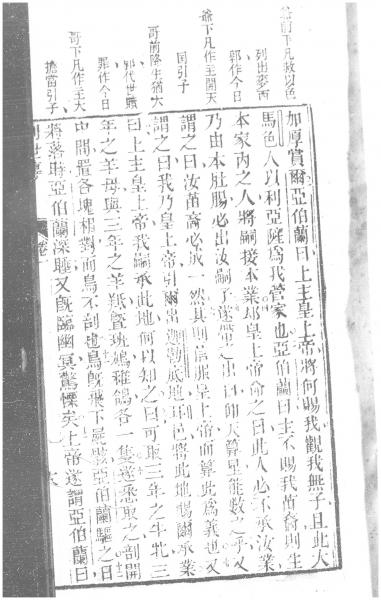 爺前下凡救以色
列出麥西
郭作今日
爺下凡作主開天
国引子
哥前降生猶大
郭代世贖
罪作今日
哥下凡作主大
擔當引子
加厚賞爾亞伯蘭曰上主皇上帝將何賜我觀我無子且此大
馬色人以利亞薩為我管家也亞伯蘭曰主不賜我苗裔則生
本家內之人將嗣接本業耶皇上帝諭之曰此人必不承汝業
乃由本肚腸必出汝嗣子遂帶之出曰仰天算星能數之乎又
謂之曰汝苗裔必誠一然其則信服皇上帝而算此為義也又
謂之曰我乃皇上帝引爾出迦勒底地邑將此地賜爾承業
曰上主皇上帝我嗣承此地何以知之曰可取三年之牛牝三
年之羊母與三年之羊羝曁斑鳩雛鴿各一隻遂悉取之剖開
中間置各塊相對而鳥不剖也鳥旣飛下屍骸亞伯蘭驅之日
將落時亞伯蘭深睡又旣臨幽冥驚慄矣上帝遂謂亞伯蘭曰
卷 六